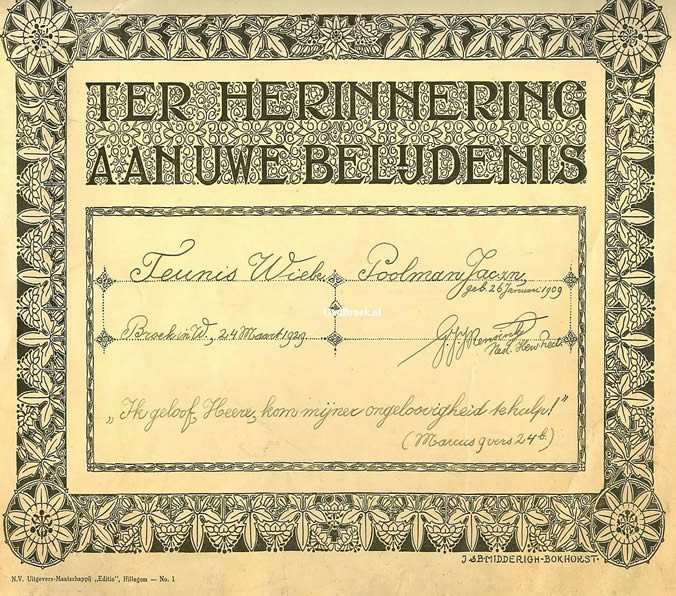 TER HERINNERING
AAN UWE BELIJDENIS
Teunis Wiebe Poolman Jaczn,
geb. 26 Januari 1909
Broek in W., 24 Maart 1929 G.J.J. Rensink
Ned. Herv. Pred.
„Ik geloof, Heere, kom mijner ongeloovigheid te hulp!"
(Marcus 9 vers 24b.)
J·S·B·MIDDERIGH-BOKHORST·
N.V. Uitgevers-Maatschappij „Editio", Hillegom — No. 1